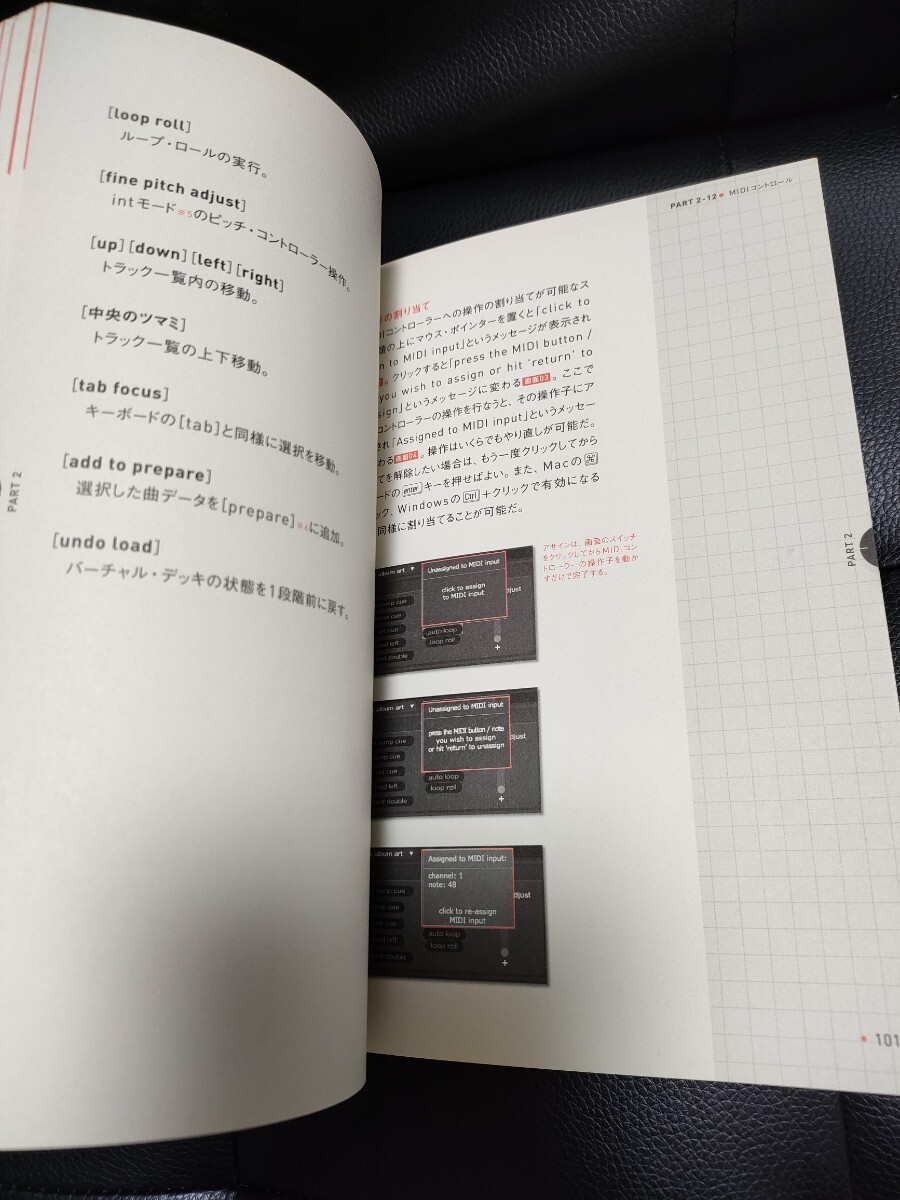 [loop roll]
ループ・ロールの実行。
[fine pitch adjust]
intモード※5のピッチ・コントローラー操作。
[up][down][left][right]
トラック一覧内の移動。
[中央のツマミ]
トラック一覧の上下移動。
[tab focus]
キーボードの[tab]と同様に選択を移動。
[add to prepare]
選択した曲データを[prepare]に追加。
[undo load]
バーチャル・デッキの状態を1段階前に戻す。
PART 2
PART 2-12 MIDIコントロール
の割り当て
DIコントローラーへの操作の割り当てが可能なス
頭の上にマウス・ポインターを置くと「click to
n to MIDI input」というメッセージが表示され
。クリックすると「press the MIDI button /
you wish to assign or hit 'return' to
sign」というメッセージに変わる 画面03 。ここで
コントローラーの操作を行なうと、その操作子にア
され「Assigned to MIDI input」というメッセー
わる 画面04 。操作はいくらでもやり直しが可能だ。
てを解除したい場合は、もう一度クリックしてから
ードの enter キーを押せばよい。また、Macの ⌘
ック、Windowsの Ctrl ＋クリックで有効になる
同様に割り当てることが可能だ。
アサインは、画面のスイッチ
をクリックしてからMIDIコント
ローラーの操作子を動か
すだけで完了する。
album art ▼
Unassigned to MIDI input
click to assign
to MIDI input
djust
mp cue
me cue
rt cue
ad left
nt double
auto loop
loop roll
+
album art ▼
Unassigned to MIDI input
press the MIDI button / note
you wish to assign
or hit 'return' to unassign
djust
mp cue
mp cue
art cue
oad left
ant double
auto loop
loop roll
+
album art ▼
Assigned to MIDI input:
channel: 1
note: 48
click to re-assign
MIDI input
djust
mp cue
mp cue
art cue
oad left
ant double
auto loop
loop roll
+
PART 2
101